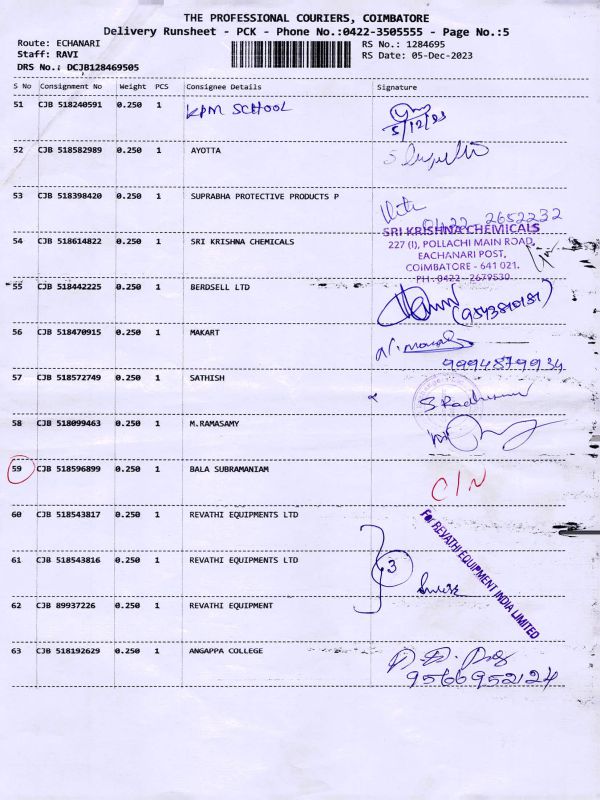 THE PROFESSIONAL COURIERS, COIMBATORE
Delivery Runsheet - PCK - Phone No.:0422-3505555 - Page No.:5
Route: ECHANARI RS No.: 1284695
Staff: RAVI RS Date: 05-Dec-2023
DRS No.: DCJB128469505
S No Consignment No Weight PCS Consignee Details Signature
51 CJB 518240591 0.250 1 KPM SCHOOL
5/12/23
52 CJB 518582989 0.250 1 AYOTTA
53 CJB 518398420 0.250 1 SUPRABHA PROTECTIVE PRODUCTS P
0422 2652232
SRI KRISHNA CHEMICALS
54 CJB 518614822 0.250 1 SRI KRISHNA CHEMICALS 227 (I), POLLACHI MAIN ROAD,
EACHANARI POST,
COIMBATORE - 641 021.
PH: 0422 - 2679530
55 CJB 518442225 0.250 1 BERDSELL LTD
56 CJB 518470915 0.250 1 MAKART
9994879934
57 CJB 518572749 0.250 1 SATHISH
58 CJB 518099463 0.250 1 M.RAMASAMY
59 CJB 518596899 0.250 1 BALA SUBRAMANIAM
C/N
60 CJB 518543817 0.250 1 REVATHI EQUIPMENTS LTD
For REVATHI EQUIPMENT INDIA LIMITED
61 CJB 518543816 0.250 1 REVATHI EQUIPMENTS LTD 3
62 CJB 89937226 0.250 1 REVATHI EQUIPMENT
63 CJB 518192629 0.250 1 ANGAPPA COLLEGE
9566952124